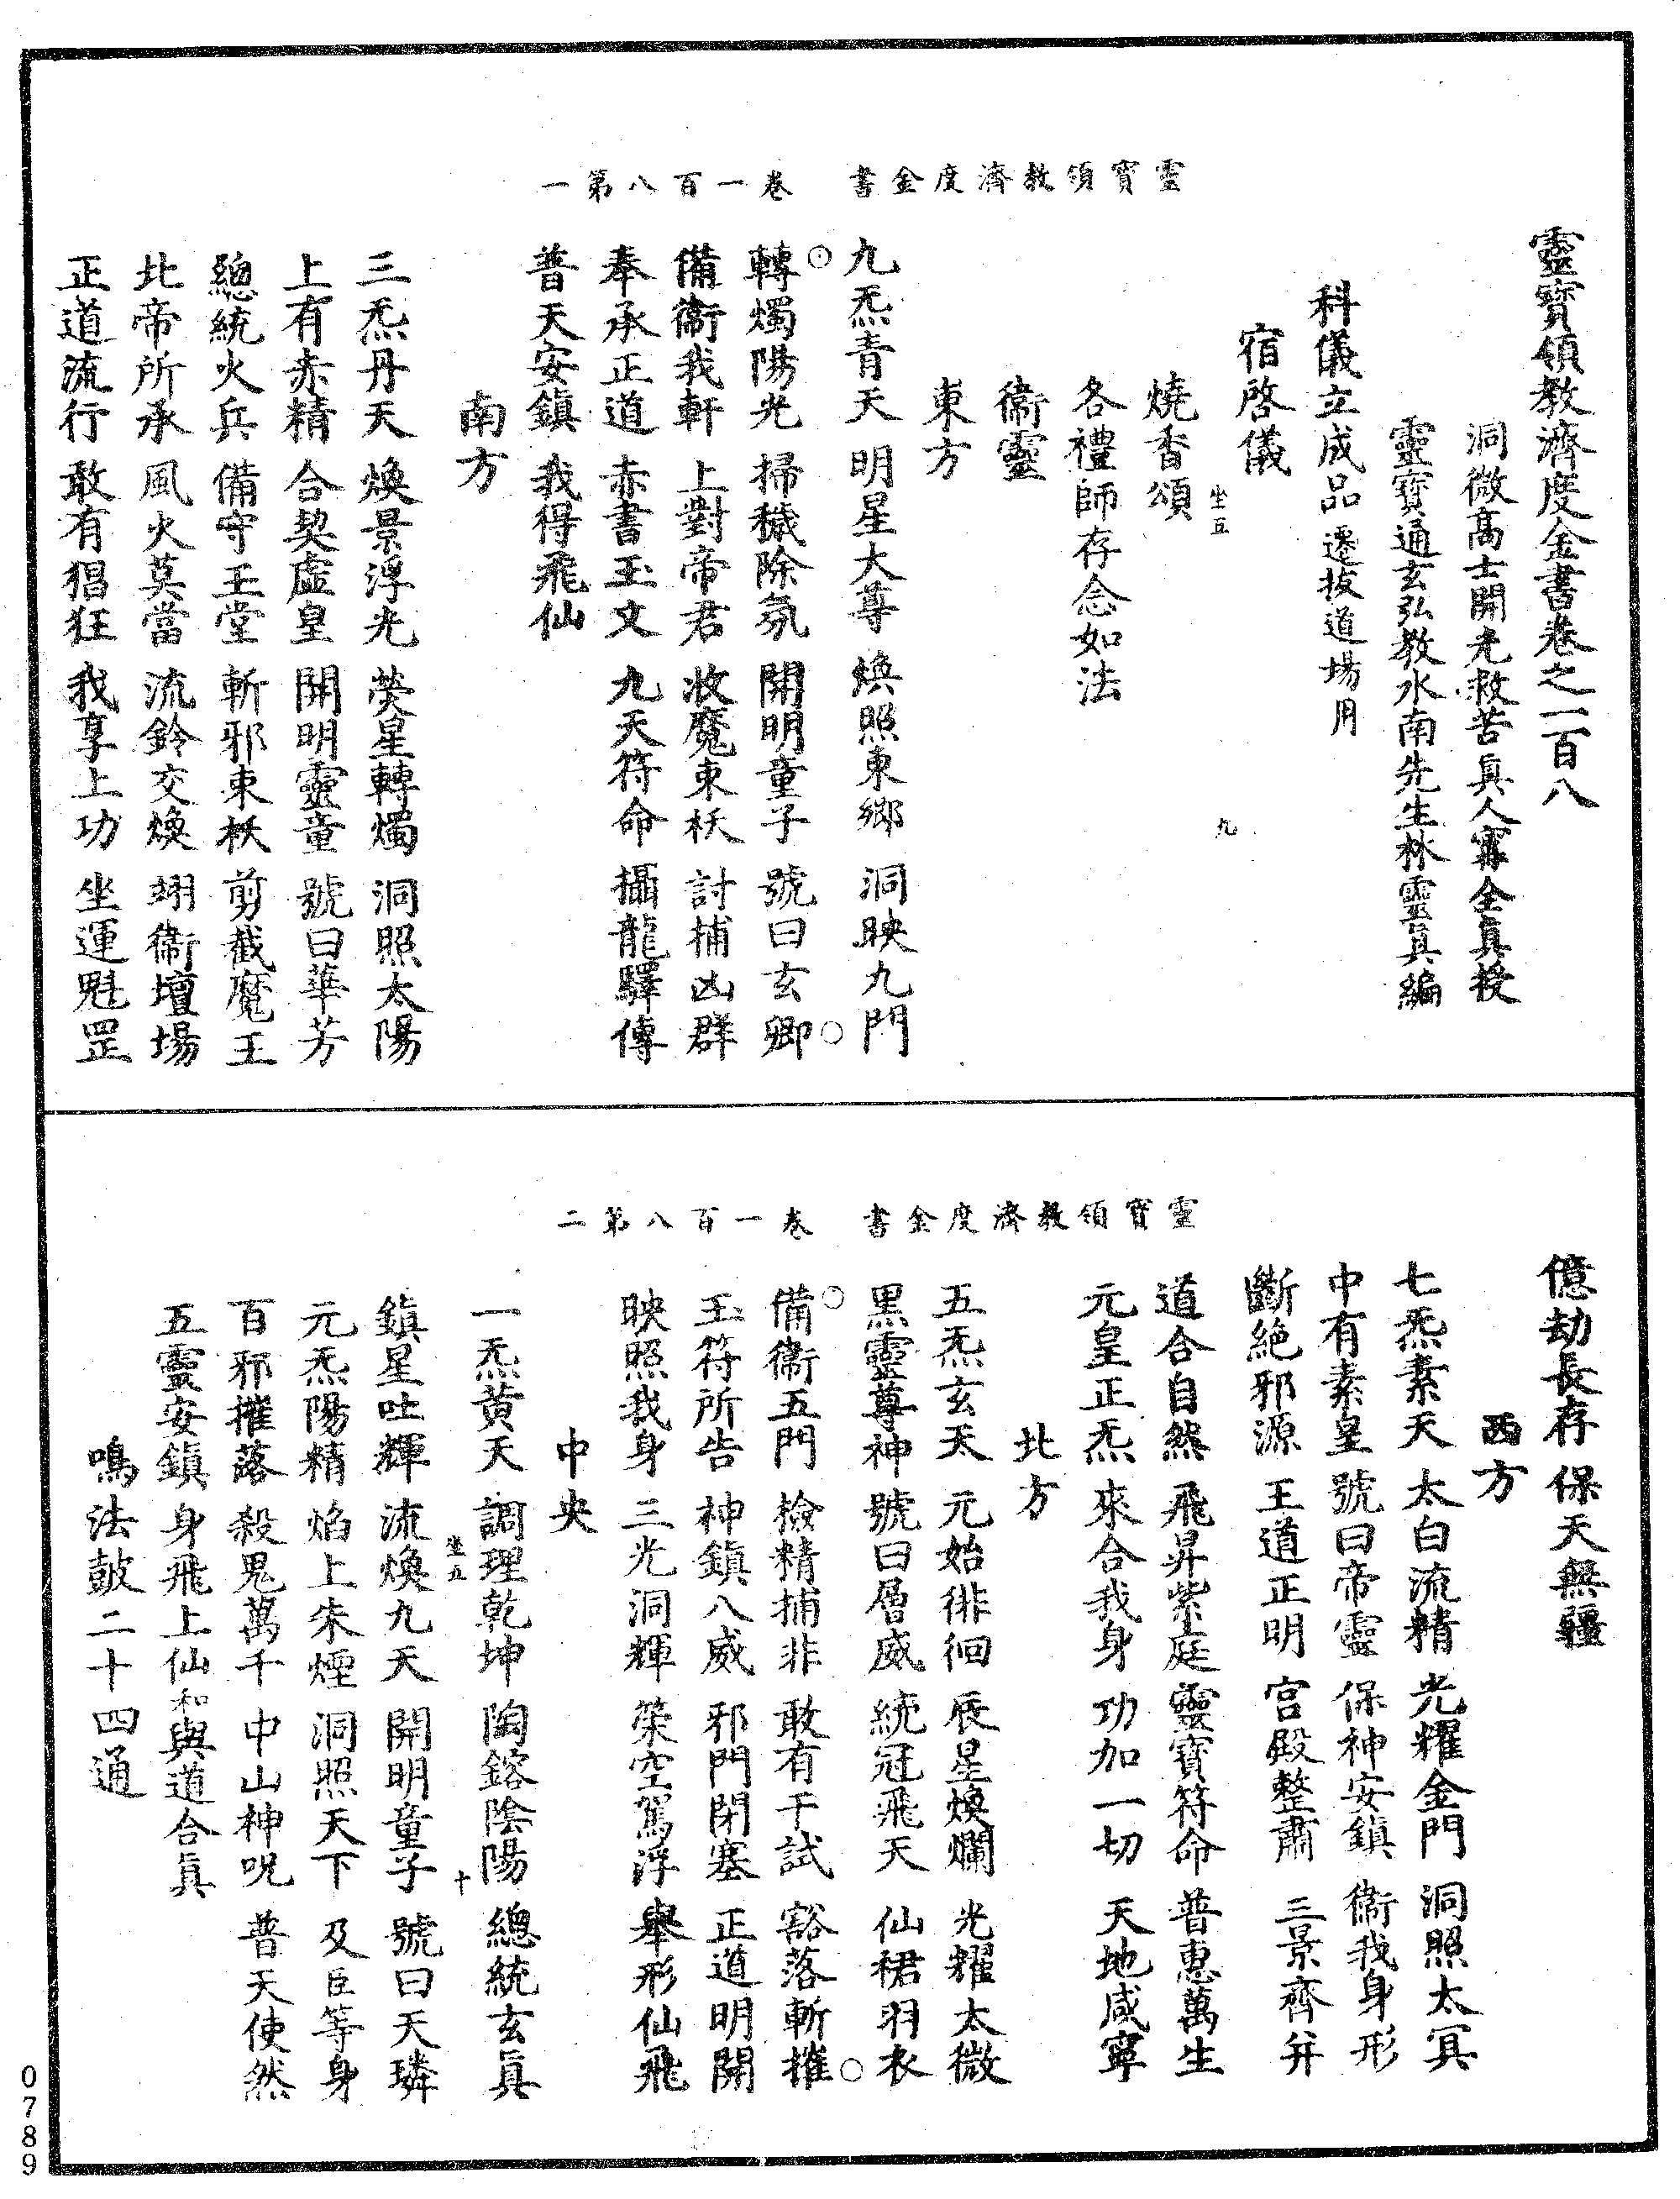 靈寶領教濟度金書 卷一百八第一
靈寶領教濟度金書卷之一百八
洞微高士開光救苦眞人寗全真授
靈寶通玄弘教水南先生林靈眞編
科儀立成品 遷拔道場用
宿啓儀
坐五 九
燒香頌
各禮師存念如法
衞靈
東方
九炁青天 明星大尊 煥照東鄉 洞映九門
轉燭陽光 掃穢除氛 開明童子 號曰玄卿
備衞我軒 上對帝君 收魔束袄 討捕凶群
奉承正道 赤書玉文 九天符命 攝龍驛傳
普天安鎮 我得飛仙
南方
三炁丹天 煥景浮光 熒星轉燭 洞照太陽
上有赤精 合契虛皇 開明靈童 號曰華芳
總統火兵 備守玉堂 斬邪束袄 剪截魔王
北帝所承 風火莫當 流鈴交煥 翊衞壇場
正道流行 敢有猖狂 我享上功 坐運魁罡
靈寶領教濟度金書 卷一百八第二
億劫長存 保天無疆
西方
七炁素天 太白流精 光耀金門 洞照太冥
中有素皇 號曰帝靈 保神安鎮 衞我身形
斷絶邪源 王道正明 宫殿整肅 三景齊并
道合自然 飛昇紫庭 靈寶符命 普惠萬生
元皇正炁 來合我身 功加一切 天地咸寧
北方
五炁玄天 元始徘徊 辰星煥爛 光耀太微
黑靈尊神 號曰層威 統冠飛天 仙裙羽衣
備衞五門 檢精捕非 敢有干試 豁落斬摧
玉符所告 神鎮八威 邪門閉塞 正道明開
映照我身 三光洞輝 策空駕浮 舉形仙飛
中央
一炁黄天 調理乾坤 陶鎔陰陽 總統玄眞
坐五 十
鎮星吐輝 流煥九天 開明童子 號曰天璘
元炁陽精 焰上朱煙 洞照天下 及臣等身
百邪摧落 殺鬼萬千 中山神呪 普天使然
五靈安鎮 身飛上仙 和 與道合眞
鳴法鼓二十四通
0789